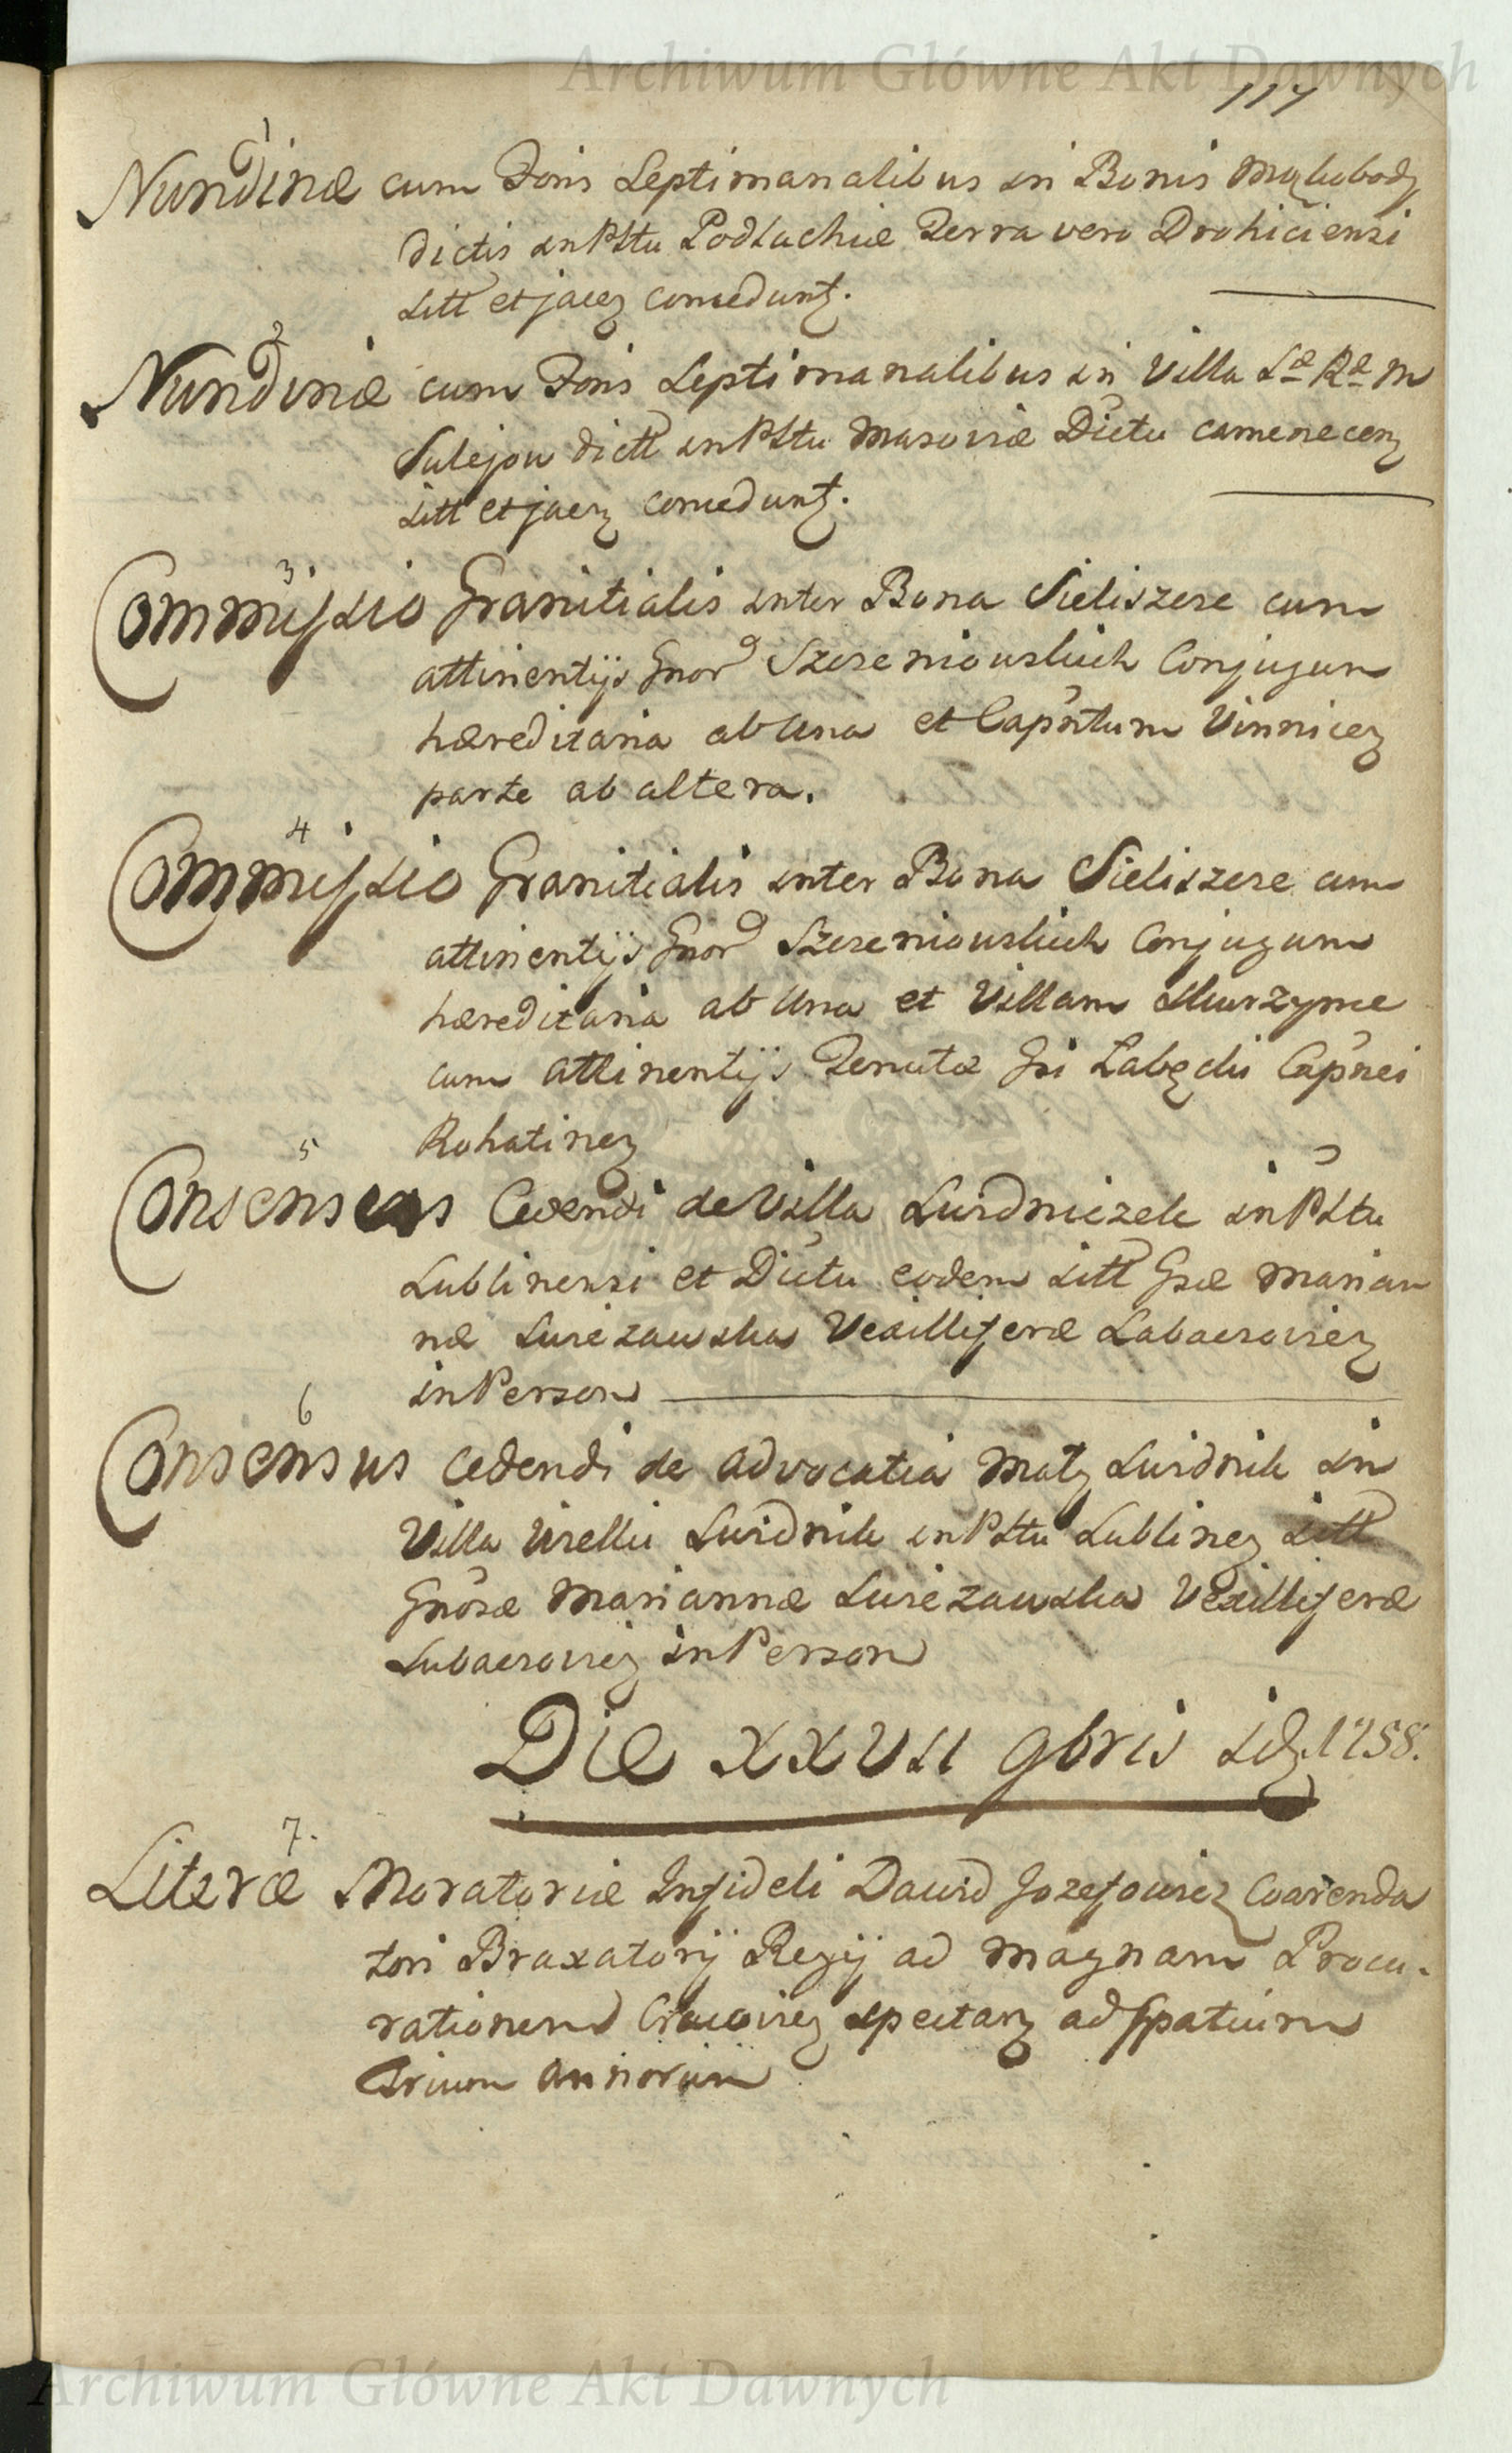 Archiwum Główne Akt Dawnych
117
1
Nundinæ cum Foris Septimanalibus in Bonis Mąkobody
dictis in Pltu Podlachiæ Terra vero Drohiciensi
sitt et jacen concedunt.
2
Nundinæ cum Foris Septimanalibus in Villa Sæ Ræ M
Sulejow dict in Pltu Masoviæ Dictu camenecen
sitt et jacen concedunt.
3
Commissio Granitialis inter Bona Sieliszcze cum
attinentijs Gnor Szczeniowskich Conjugum
hæreditaria ab una et Capntum Vinnicen
parte ab altera.
4
Commissio Granitialis inter Bona Sieliszcze cum
attinentijs Gnor Szczeniowskich Conjugum
hæreditaria ab Una et Villam
cum attinentijs Tenutæ Gsi Łabęcki Capnei
Rohatinen
5
Consensus Cedendi de Villa Swidniczek in Pltu
Lublinensi et Dictu eodem sitt Gsæ Marian
næ Vexilliferæ
in Person
6
Consensus cedendi de advocatia Mały Swidnik in
Villa Wielki Swidnik in Pltu Lublinen sitt
Gnosæ Mariannæ Vexilliferæ
in Person
Die XXVII 9bris id 1758.
7.
Literæ Moratoriæ Infideli Dawid Jozefowicz Coarenda
tori Braxatorij Regij ad magnam Procu-
rationem Cracovien spectan ad spatium
trium annorum
Archiwum Główne Akt Dawnych